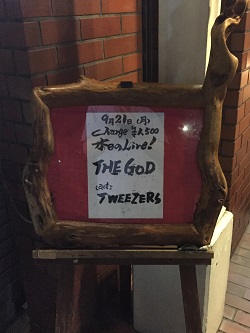 9月21日(月)
charge ¥1,500
本日のLive!
THE GOD
TWEEZERS